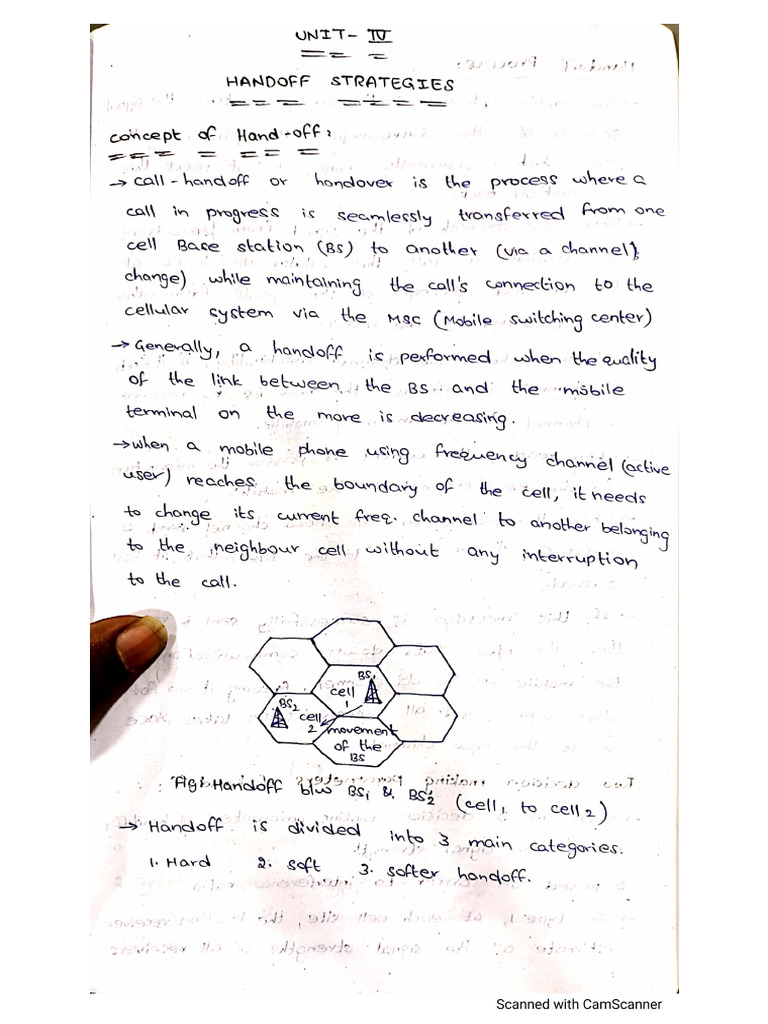 UNIT-IV
HANDOFF STRATEGIES
Concept of Hand-off:
→ Call-handoff or handover is the process where a
call in progress is seamlessly transferred from one
cell Base station (BS) to another (via a channel
change) while maintaining the call's connection to the
cellular system via the MSC (Mobile switching center)
→ Generally, a handoff is performed when the quality
of the link between the BS and the mobile
terminal on the more is decreasing.
→ when a mobile phone using frequency channel (active
user) reaches the boundary of the cell, it needs
to change its current freq. channel to another belonging
to the neighbour cell without any interruption
to the call.
BS1
cell
1
BS2
cell
2
movement
of the
BS
Fig: Handoff b/w BS1 & BS2 (cell1 to cell2)
→ Handoff is divided into 3 main categories.
1. Hard 2. soft 3. softer handoff.
Scanned with CamScanner